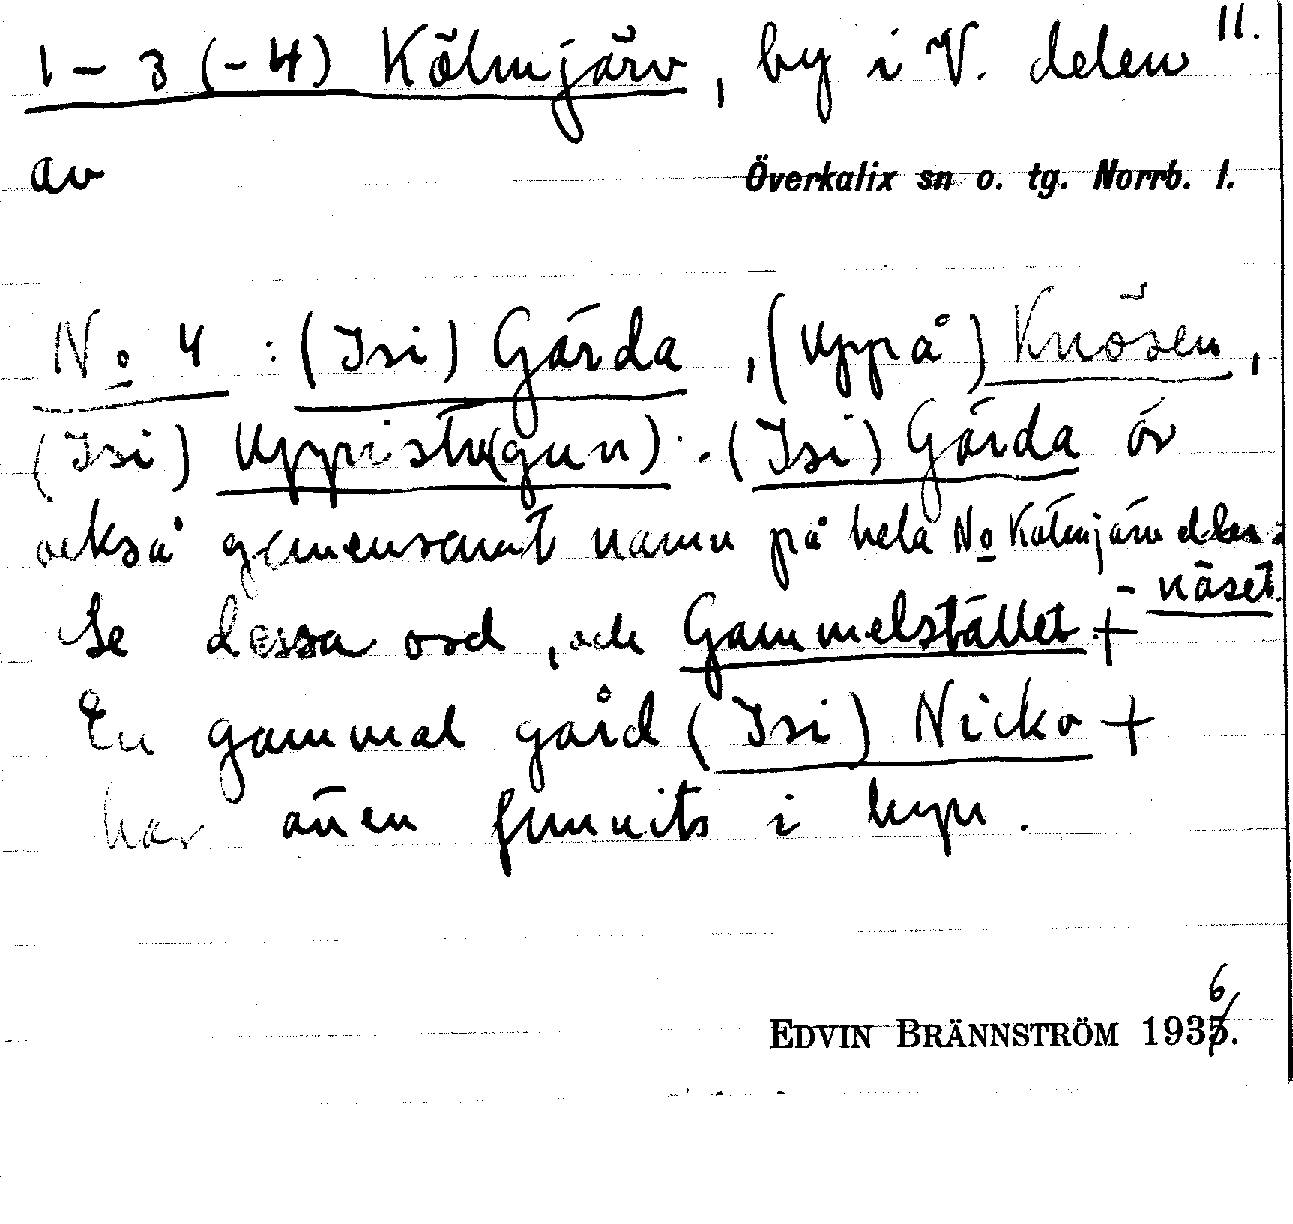 11.
1-3 (-4) Kölmjärv, by i V. delen
av Överkalix sn o. tg. Norrb. l.
No 4 : (Isi) Gärda, (Uppå) Knösen,
(Isi) Uppristu(gun). (Isi) Gärda är
också gemensamt namn på hela No Kölmjärv
Se dessa ord, och Gammelstället + -näset.
En gammal gård (Isi) Nicko +
har även funnits i byn.
EDVIN BRÄNNSTRÖM 1936.